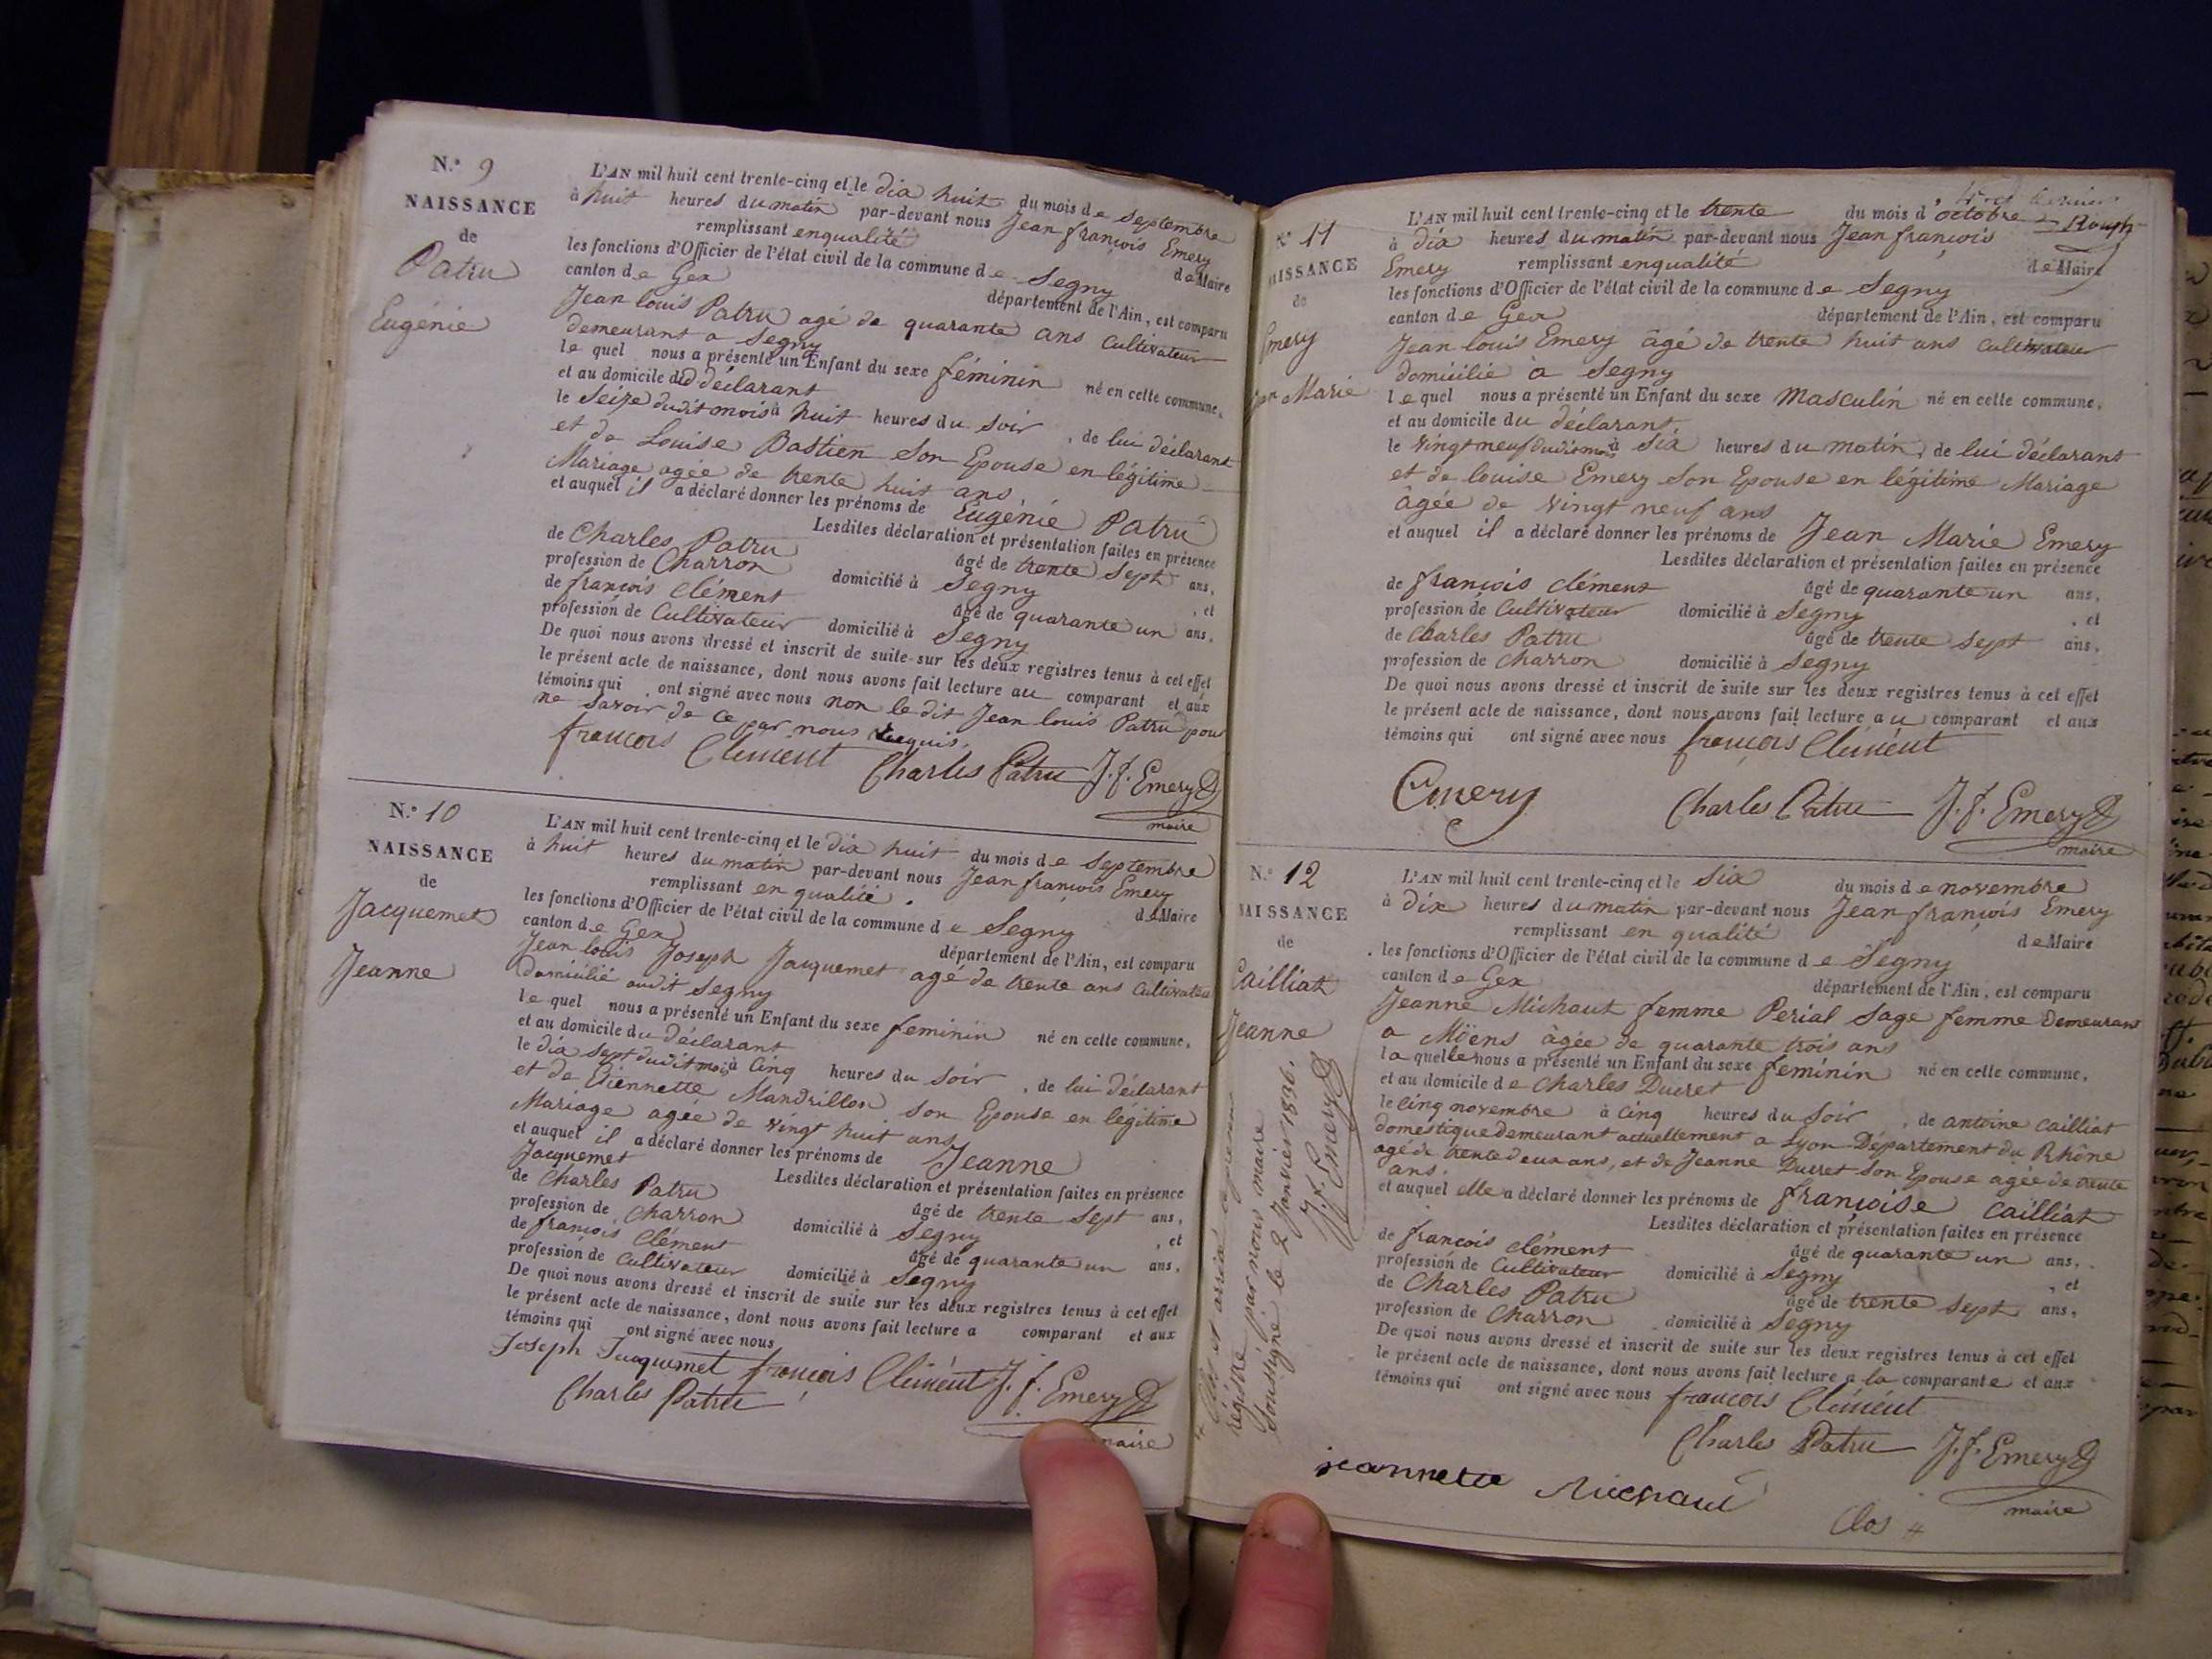 N.° 9
NAISSANCE
de
Patru
Eugénie
L'AN mil huit cent trente-cinq et le dix huit du mois de Septembre
à huit heures du matin par-devant nous Jean françois Emery
remplissant en qualité de Maire
les fonctions d'Officier de l'état civil de la commune de Segny
canton de Gex département de l'Ain, est comparu
Jean louis Patru agé de quarante ans Cultivateur
demeurant a Segny
le quel nous a présenté un Enfant du sexe féminin né en cette commune,
et au domicile dud déclarant
le Seize dudit mois à huit heures du Soir, de lui déclarant
et de Louise Bastien Son Epouse en légitime
Mariage agée de trente huit ans,
et auquel il a déclaré donner les prénoms de Eugénie Patru
Lesdites déclaration et présentation faites en présence
de Charles Patru âgé de trente Sept ans,
profession de Charron domicilié à Segny, et
de françois clément âgé de quarante un ans,
profession de Cultivateur domicilié à Segny
De quoi nous avons dressé et inscrit de suite sur les deux registres tenus à cet effet
le présent acte de naissance, dont nous avons fait lecture au comparant et aux
témoins qui ont signé avec nous non le dit Jean louis Patru pour
ne Savoir de ce par nous requis.
françois Clément Charles Patru J. f. Emery
maire
N.° 10
NAISSANCE
de
Jacquemet
Jeanne
L'AN mil huit cent trente-cinq et le dix huit du mois de Septembre
à huit heures du matin par-devant nous Jean françois Emery
remplissant en qualité de Maire
les fonctions d'Officier de l'état civil de la commune de Segny
canton de Gex département de l'Ain, est comparu
Jean louis Joseph Jacquemet agé de trente ans Cultivateur
domicilié audit Segny
le quel nous a présenté un Enfant du sexe feminin né en cette commune,
et au domicile du déclarant
le dix Sept dudit mois à Cinq heures du Soir, de lui déclarant
et de Etiennette Mandrillon Son Epouse en légitime
Mariage agée de vingt huit ans
et auquel il a déclaré donner les prénoms de Jeanne
Jacquemet Lesdites déclaration et présentation faites en présence
de Charles Patru âgé de trente Sept ans,
profession de Charron domicilié à Segny, et
de françois Clément âgé de quarante un ans,
profession de Cultivateur domicilié à Segny
De quoi nous avons dressé et inscrit de suite sur les deux registres tenus à cet effet
le présent acte de naissance, dont nous avons fait lecture a comparant et aux
témoins qui ont signé avec nous
Joseph Jacquemet françois Clément J. f. Emery
Charles Patru maire
N.° 11
AISSANCE
de
Emery
Marie
L'AN mil huit cent trente-cinq et le trente du mois d'octobre
à dix heures du matin par-devant nous Jean françois
Emery remplissant en qualité de Maire
les fonctions d'Officier de l'état civil de la commune de Segny
canton de Gex département de l'Ain, est comparu
Jean louis Emery âgé de trente huit ans cultivateur
domicilié à Segny
le quel nous a présenté un Enfant du sexe Masculin né en cette commune,
et au domicile du déclarant
le vingt neuf dudit mois à Six heures du matin, de lui déclarant
et de louise Emery Son Epouse en légitime Mariage
âgée de vingt neuf ans
et auquel il a déclaré donner les prénoms de Jean Marie Emery
Lesdites déclaration et présentation faites en présence
de françois clément âgé de quarante un ans,
profession de Cultivateur domicilié à Segny, et
de Charles Patru âgé de trente Sept ans,
profession de charron domicilié à Segny
De quoi nous avons dressé et inscrit de suite sur les deux registres tenus à cet effet
le présent acte de naissance, dont nous avons fait lecture au comparant et aux
témoins qui ont signé avec nous françois Clément
Emery Charles Patru J. f. Emery
maire
N.° 12
NAISSANCE
de
Cailliat
Jeanne
L'AN mil huit cent trente-cinq et le Six du mois de novembre
à dix heures du matin par-devant nous Jean françois Emery
remplissant en qualité de Maire
les fonctions d'Officier de l'état civil de la commune de Segny
canton de Gex département de l'Ain, est comparu
Jeanne Michaut femme Perial Sage femme Demeurant
a Möens âgée de quarante trois ans
la quelle nous a présenté un Enfant du sexe féminin né en cette commune,
et au domicile de Charles Ducret
le Cinq novembre à Cinq heures du Soir, de antoine cailliat
domestique demeurant actuellement a Lyon Département du Rhône
agé de trente deux ans, et de Jeanne Ducret Son Epouse agée de trente
ans.
et auquel elle a déclaré donner les prénoms de françoise cailliat
Lesdites déclaration et présentation faites en présence
de françois clément âgé de quarante un ans,
profession de Cultivateur domicilié à Segny, et
de Charles Patru âgé de trente Sept ans,
profession de Charron domicilié à Segny
De quoi nous avons dressé et inscrit de suite sur les deux registres tenus à cet effet
le présent acte de naissance, dont nous avons fait lecture a la comparante et aux
témoins qui ont signé avec nous françois Clément
Charles Patru J. f. Emery
maire
jeannette Michaut
Clos
Clos et arrêté le présent
registre par nous maire
Soussigné le 2 Janvier 1836.
J. f. Emery